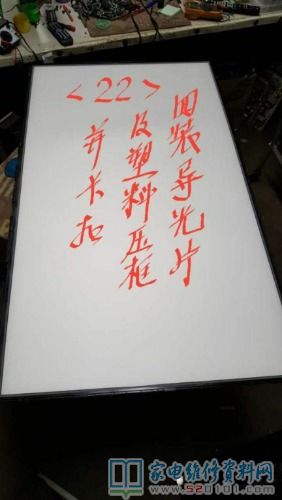 <22>
回装导光片
及塑料压框
并卡扣
家电维修资料网
www.520101.com